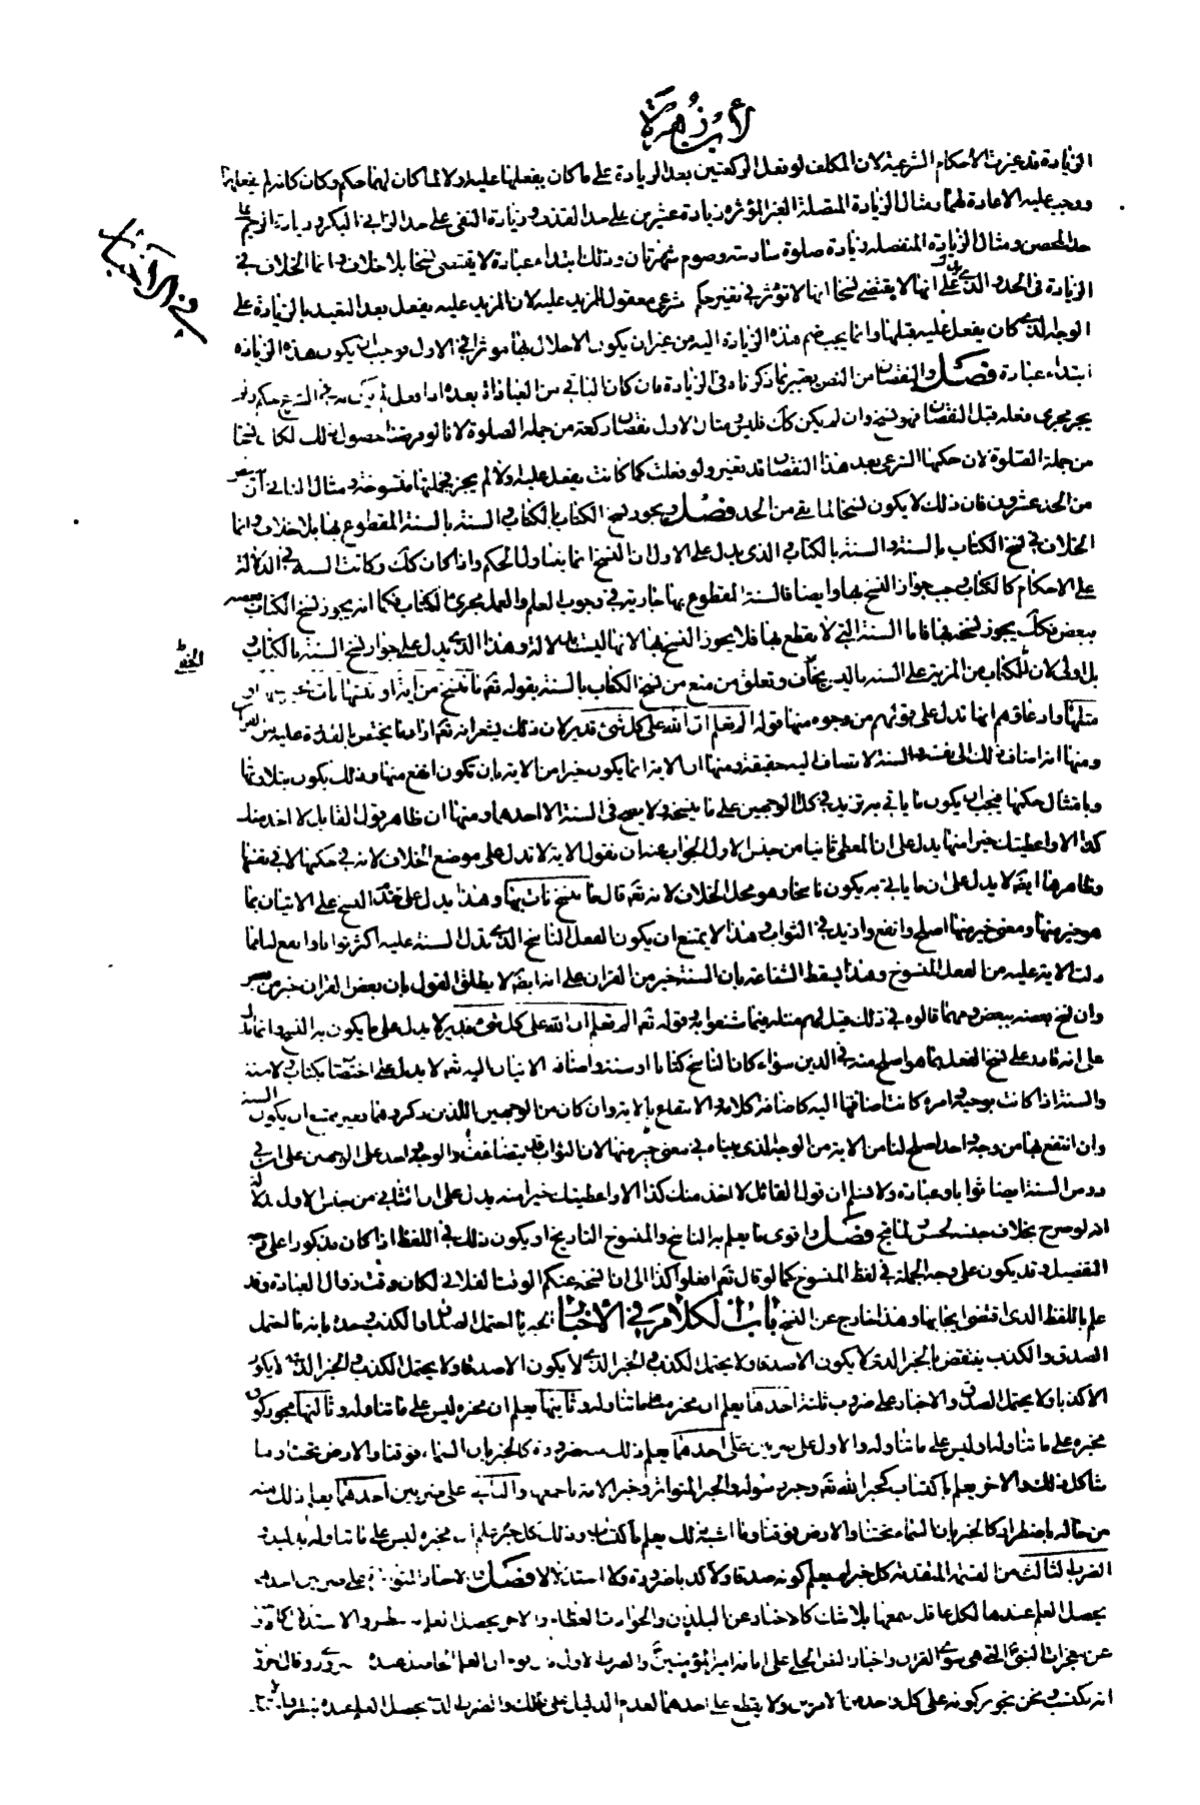 لأبن زهرة
الزيادة قد غيرت الأحكام الشرعية لان المكلف لو فعل الركعتين بعد الزيادة على ما كان يفعلهما عليه اولا لما كان لهما حكم وكان كانه لم يفعلهما
ووجب عليه الاعادة لهما ومثال الزيادة المتصلة الغير المؤثره زيادة عشرين على حد القذف وزيادة النفى على حد الزانى البكر وزيادة الرجم على
حد المحصن ومثال الزيادة المنفصله زيادة صلوة سادسة وصوم شهر ثان وذلك ابتداء عبادة لا يقتضى نسخا بلا خلاف وانما الخلاف في
الزيادة فى الحد والذى يدل على انها لا يقتضى نسخا انها لا تؤثر فى تغير حكم شرعى معقول للمزيد عليه لان المزيد عليه يفعل بعد التعبد بالزيادة على
الوجه الذى كان يفعل عليه قبلها وانما يجب ضم هذه الزيادة اليه من غير ان يكون الاخلال بها مؤثرا فى الاول فوجب ان يكون هذه الزيادة
ابتداء عبادة فصل والنقصان من النص يعتبر بما ذكرناه فى الزيادة فان كان الباقى من العبادة بعده اذا فعل لم يكن له فى الشرع حكم ولم
يجر مجرى فعله قبل النقصان فهو نسخ وان لم يكن كك فليس مثال الاول نقصان ركعة من جملة الصلوة لانا لو فرضنا حصول ذلك لكان نسخا
من جملة الصلوة لان حكمها الشرعى بعد هذا النقصان قد تغير ولو فعلت كما كانت يفعل عليه اولا لم يجز فجملتها منسوخة ومثال الثانى ان
من الحد عشرون فان ذلك لا يكون نسخا لما بقى من الحد فصل ويجوز نسخ الكتاب بالكتاب والسنة بالسنة المقطوع بها بلا خلاف وانما
الخلاف في نسخ الكتاب بالسنة والسنة بالكتاب والذى يدل على الاول ان النسخ انما يتناول الحكم واذا كان كك وكانت السنة في الدلالة
على الاحكام كالكتاب وجب جواز النسخ بها وايضا فالسنة المقطوع بها جارية في وجوب العلم والعمل مجرى الكتاب فكما انه يجوز نسخ الكتاب بعضه
ببعض فكك يجوز نسخه بها فاما السنة التي لا يقطع بها فلا يجوز النسخ بها لانها ليست بدلالة وهذا الذى يدل على جواز نسخ السنة بالكتاب
بل اولى لان للكتاب من المزية على السنة ما ليس بخاف وتعلق من منع من نسخ الكتاب بالسنة بقوله تعه ما ننسخ من اية او ننسها نات بخير منها او
مثلها وادعاؤهم انها تدل على قولهم من وجوه منها قوله الم تعلم ان الله على كل شئ قدير لان ذلك يشعر انه تعه اراد ما يختص بالقدرة عليه من القران
ومنها انه اضاف ذلك الى نفسه والسنة لا تضاف اليه حقيقة ومنها ان الاية انما يكون خيرا من الاية بان تكون انفع منها وذلك يكون بتلاوتها
وبامتثال حكمها فيجب ان يكون ما ياتى به يزيد في كلا الوجهين على ما ينسخه ولا يصح فى السنة الا احدهما ومنها ان ظاهر قول القايل لا اخذ منك
كذا الا واعطيتك خيرا منها يدل على ان المعطى ثانيا من جنس الاول والجواب عنه ان نقول الاية لا تدل على موضع الخلاف لانه في حكمها لا في نفسها
وظاهرها ايضه لا يدل على ان ما ياتى به يكون ناسخا وهو محل الخلاف لانه تعه قال ما ننسخ نات بخير منها وهذا يدل على تقدم النسخ على الاتيان بما
هو خير منها ومعنى خير منها اصلح وانفع وازيد في الثواب وهذا لا يمتنع ان يكون الفعل الناسخ الذى تدل السنة عليه اكثر ثوابا وانفع لنا مما
دلت الاية عليه من الفعل المنسوخ وهذا يسقط الشناعة بان السنة خير من القران على انه ايضه لا يطلق القول بان بعض القران خير من بعض
وان نسخ بعضه ببعض ومهما قالوه في ذلك قيل لهم مثله فيما شنعوا به وقوله تعه الم تعلم ان الله على كل شئ قدير لا يدل على ما يكون به النسخ وانما يدل
على انه قادر على نسخ الفعل بما هو اصلح منه في الدين سواء كان الناسخ كتابا او سنة واضافة الاتيان اليه تعه لا يدل على اختصاصه بكتاب ولا سنة
والسنة اذا كانت بوحيه وامره كانت اضافتها اليه كاضافة كلامه والانتفاع بالاية وان كان من الوجهين اللذين ذكروهما فغير ممتنع ان يكون السنة
وان انتفع بها من وجه واحد اصلح لنا من الاية من الوجه الذى بيناه في معنى خير منها لان الثواب قد يتضاعف
ودرس السنة ايضا ثوابا وعبادة ولا نسلم ان قول القائل لا اخذ منك كذا الا واعطيتك خيرا منه يدل على ان الثانى من جنس الاول بدلالة
انه لو صرح بخلاف جنسه لحسن فصل واقوى ما يعلم به الناسخ والمنسوخ التاريخ او يكون ذلك في اللفظ اذا كان مذكورا على وجه
التفصيل وقد يكون على وجه الجملة في لفظ المنسوخ كما لو قال تعه افعلوا كذا الى ان انسخه عنكم الوقت الفلانى لكان وقت زوال العبادة وقد
علم باللفظ الذى اقتضى ايجابها وهذا خارج عن النسخ باب الكلام في الأخبار الخبر ما احتمل الصدق او الكذب وحده بانه ما احتمل
الصدق والكذب ينتقض بالخبر الذى لا يكون الا صدقا ولا يحتمل الكذب والخبر الذى لا يكون
الا كذبا ولا يحتمل الصدق والاخبار على ضروب ثلثة احدها يعلم ان مخبره على ما تناوله وثانيها يعلم ان مخبره ليس على ما تناوله وثالثها يجوز كون
مخبره على ما تناوله وليس على ما تناوله والاول على ضربين احدهما يعلم ذلك ضرورة كالخبر بان السماء فوقنا والارض تحتنا وما
شاكل ذلك والاخر يعلم باكتساب كخبر الله تعه وخبر رسوله والخبر المتواتر وخبر الامة باجمعها والثانى على ضربين احدهما يعلم ذلك منه
من حاله باضطرار كالخبر بان السماء تحتنا والارض فوقنا وما اشبه ذلك يعلم باكتساب وذلك كل خبر علم ان مخبره ليس على ما تناوله بدليل
الضرب الثالث من القسمة المتقدمة كل خبر لم يعلم كونه صدقا ولا كذبا ضرورة ولا استدلالا فصل والاخبار على ضربين احدهما
يحصل العلم عندها لكل عاقل سمعها بلا شك كالاخبار عن البلدان والحوادث العظام والاخر يحصل العلم بالنظر والاستدلال كالاخبار
عن معجزات النبى التى هى سوى القران واخبار النص الجلى على امامة امير المؤمنين والضرب الاول
ونحن نجوز كونه على كل واحد من الامرين ولا يقطع على احدهما لعدم الدليل على ذلك والضرب الذى يحصل العلم عنده
في الأخبار